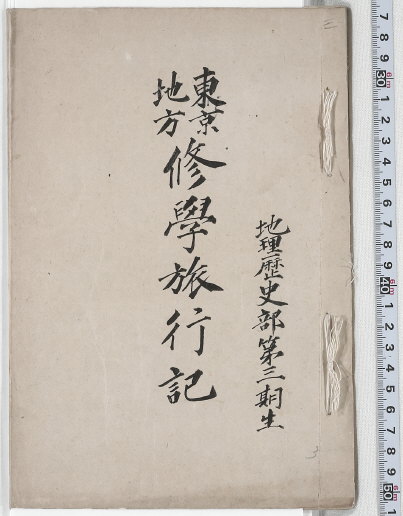 地理歴史部第三期生
東京
地方
修學旅行記
三
3
7 8 9 30 1 2 3 4 5 6 7 8 9 40 1 2 3 4 5 6 7 8 9 50 1